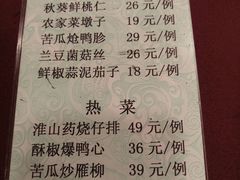 秋葵鲜桃仁 26 元/例
农家菜墩子 19 元/例
苦瓜炝鸭胗 29 元/例
兰豆菌菇丝 26 元/例
鲜椒蒜泥茄子 18 元/例
热 菜
淮山药烧仔排 49 元/例
酥椒爆鸭心 36 元/例
苦瓜炒雁柳 39 元/例